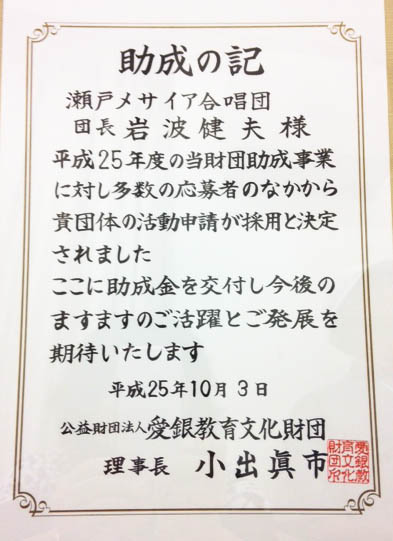 助成の記
瀬戸メサイア合唱団
団長 岩波健夫様
平成25年度の当財団助成事業
に対し多数の応募者のなかから
貴団体の活動申請が採用と決定
されました
ここに助成金を交付し今後の
ますますのご活躍とご発展を
期待いたします
平成25年10月3日
公益財団法人 愛銀教育文化財団
理事長 小出眞市
愛銀教
育文化
財団印